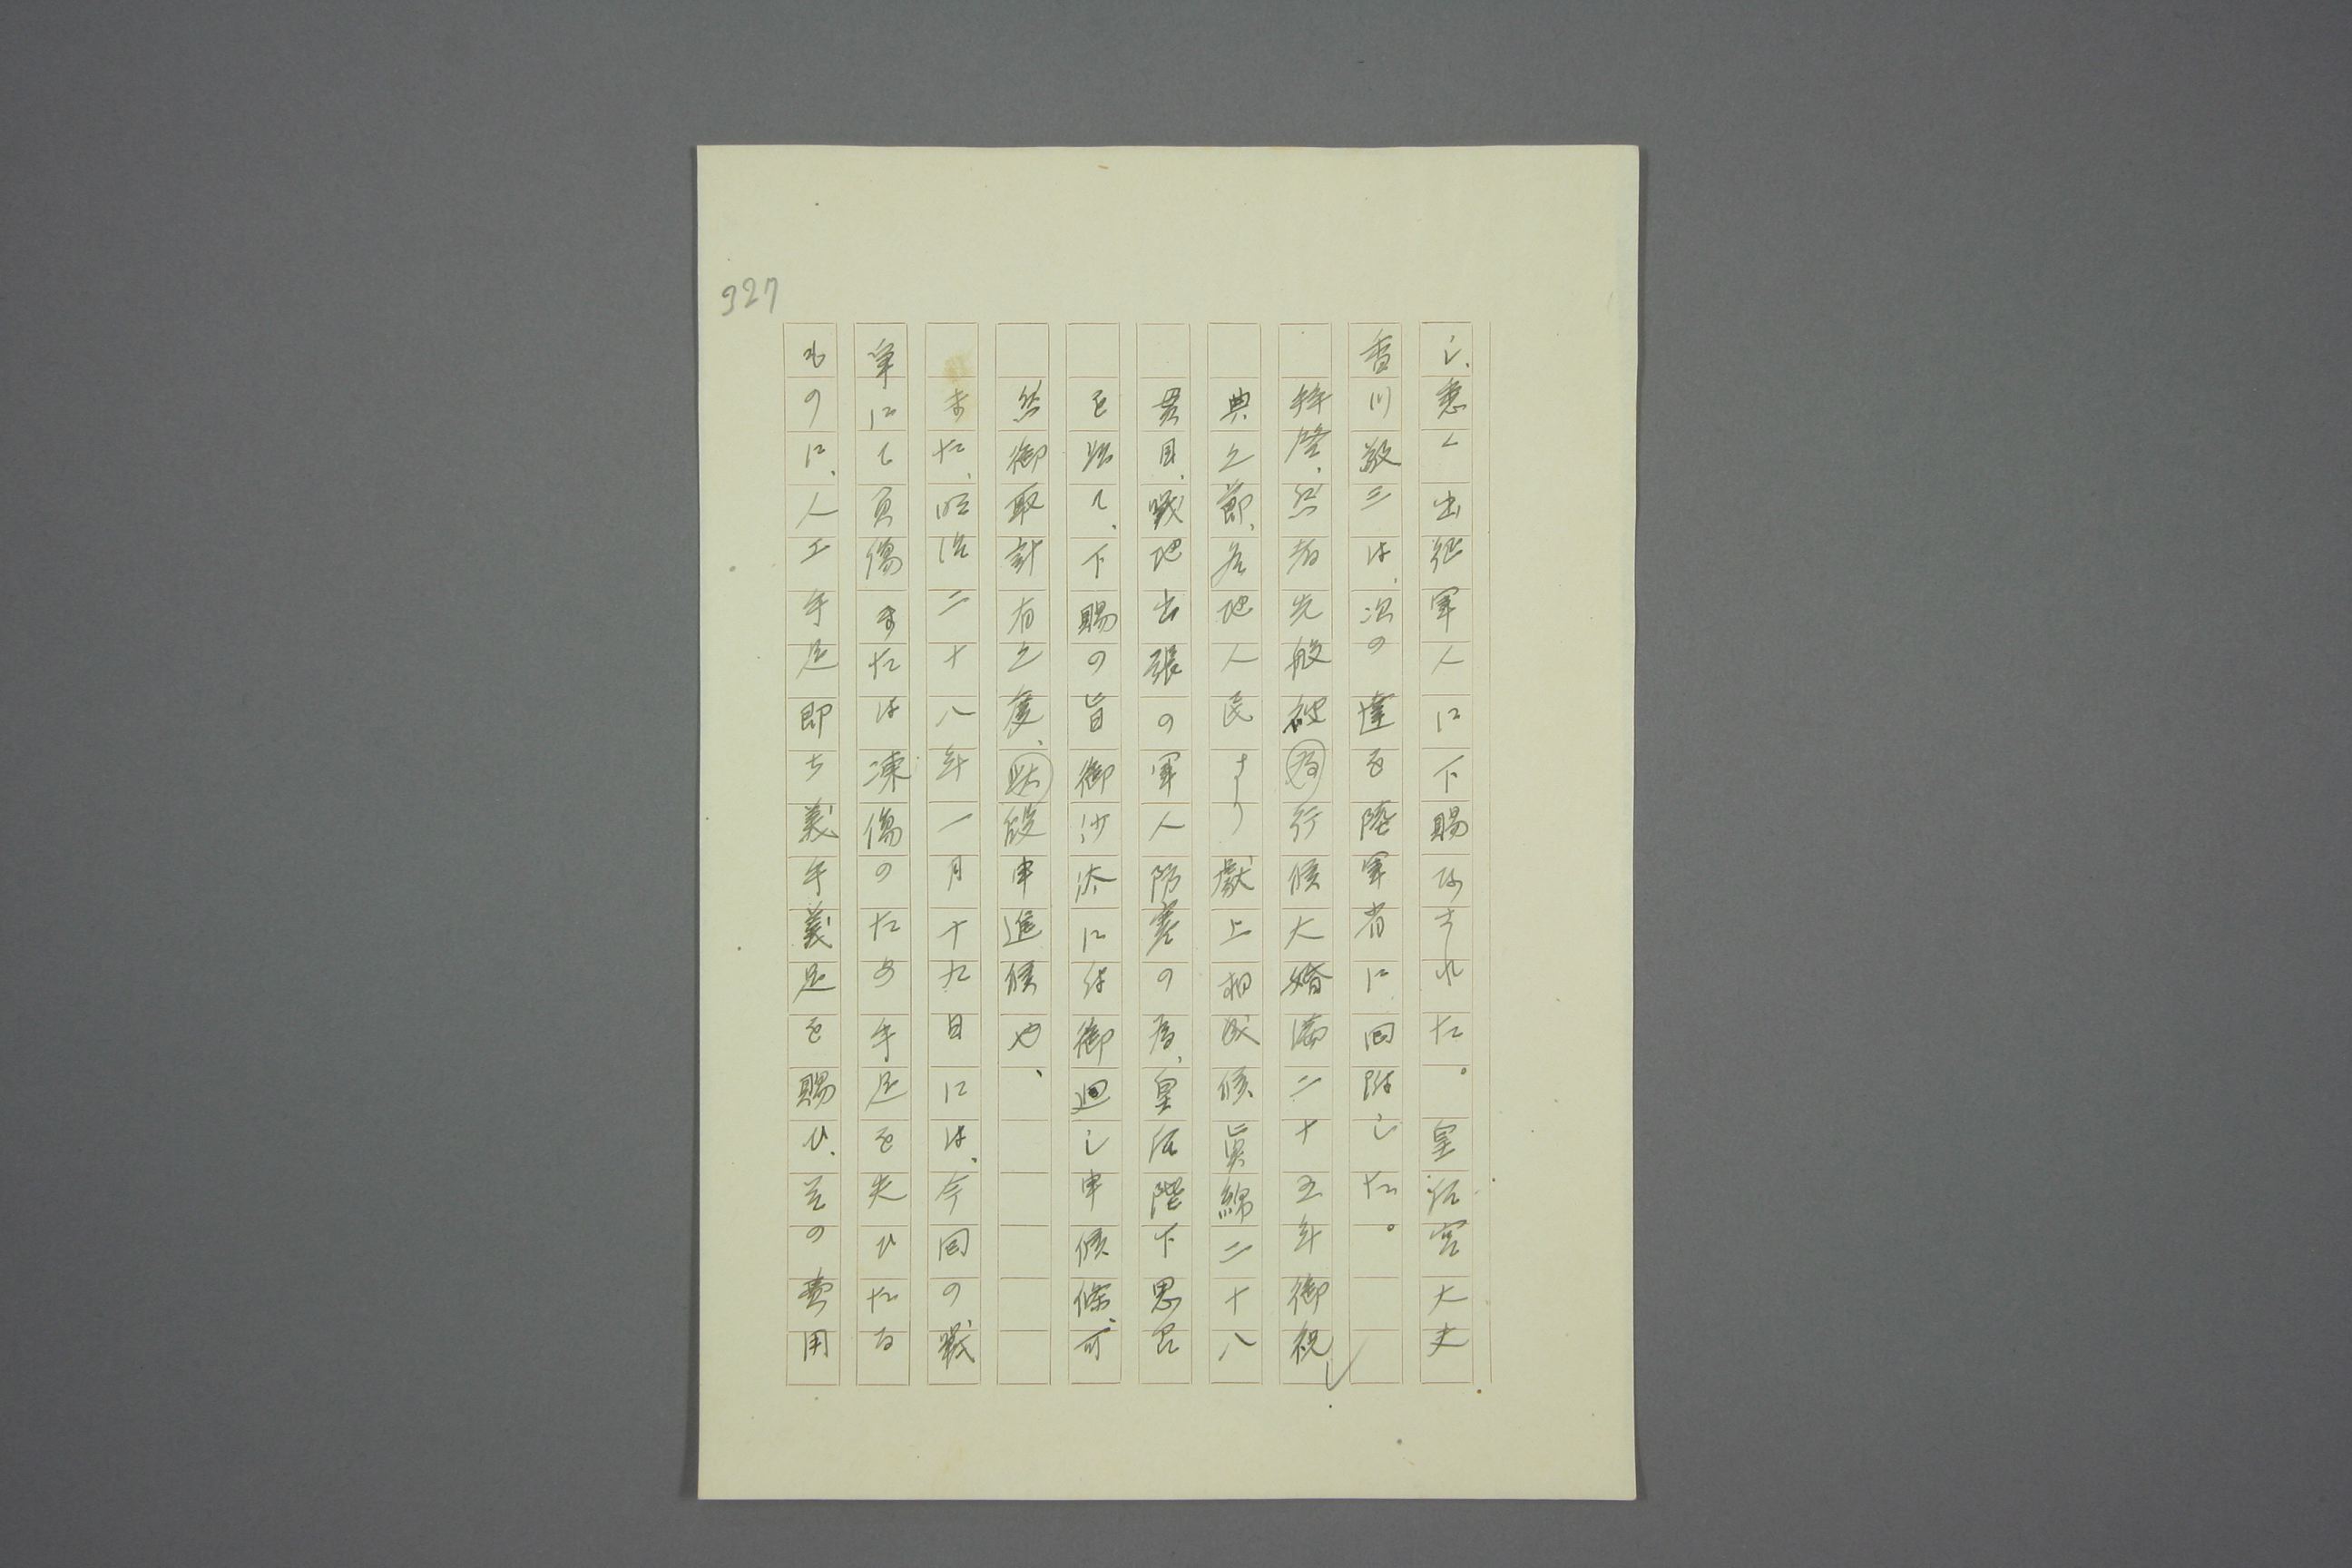 927
し、悉く出征軍人に下賜なされた。皇后宮大夫
香川敬三は、次の達を陸軍省に回附した。
拝啓、然者先般被為行候大婚満二十五年御祝
典之節、各地人民より獻上相成候眞綿二十八
貫目、戰地出張の軍人防寒の為、皇后陛下思召
を以て、下賜の旨御沙汰に付御廻し申候條、可
然御取計有之度、此段申進候也、
また、明治二十八年一月十九日には、今回の戰
爭にて負傷または凍傷のため手足を失ひたる
ものに、人工手足即ち義手義足を賜ひ、其の費用